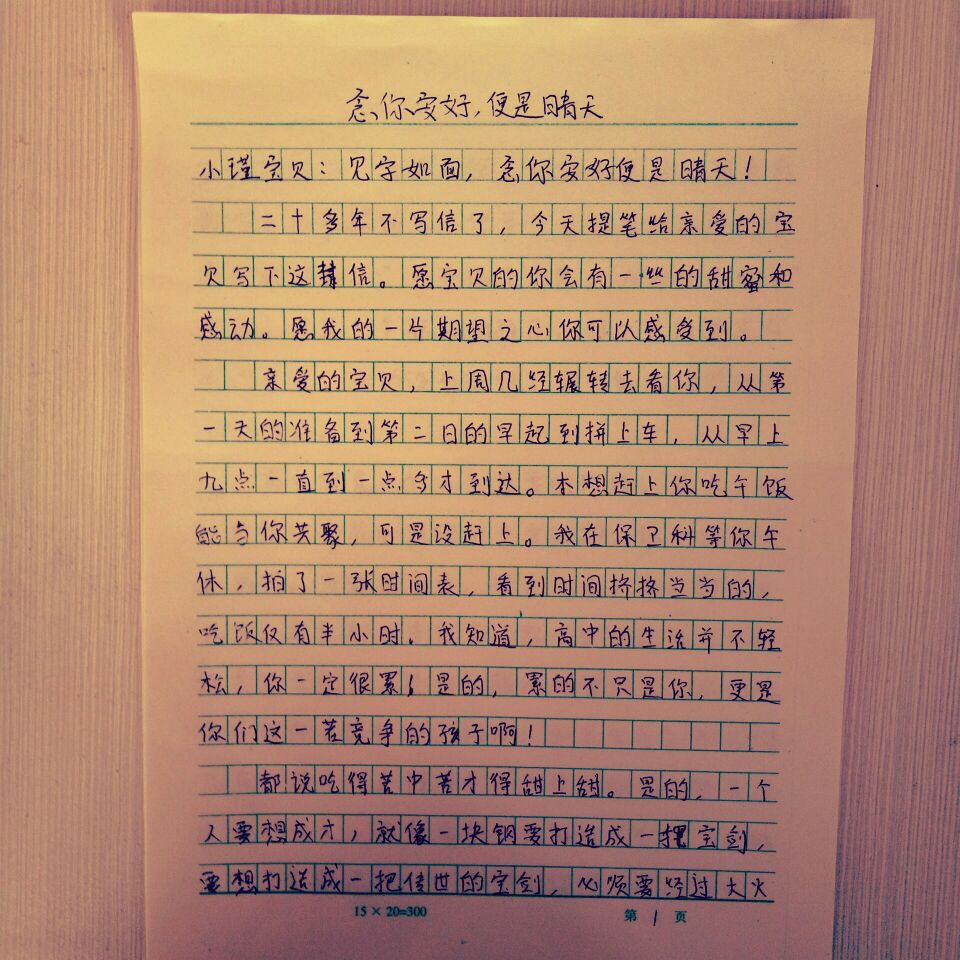 念你安好,便是晴天
小瑾宝贝:见字如面,念你安好便是晴天!
二十多年不写信了,今天提笔给亲爱的宝
贝写下这封信。愿宝贝的你会有一丝的甜蜜和
感动。愿我的一片期望之心你可以感受到。
亲爱的宝贝,上周几经辗转去看你,从第
一天的准备到第二日的早起到拼上车,从早上
九点一直到一点多才到达。本想赶上你吃午饭
能与你共聚,可是没赶上。我在保卫科等你午
休,拍了一张时间表,看到时间挤挤当当的,
吃饭仅有半小时。我知道,高中的生活并不轻
松,你一定很累!是的,累的不只是你,更是
你们这一若竞争的孩子啊!
都说吃得苦中苦才得甜上甜。是的,一个
人要想成才,就像一块钢要打造成一把宝剑,
要想打造成一把传世的宝剑,必须要经过大火
15×20=300 第 1 页